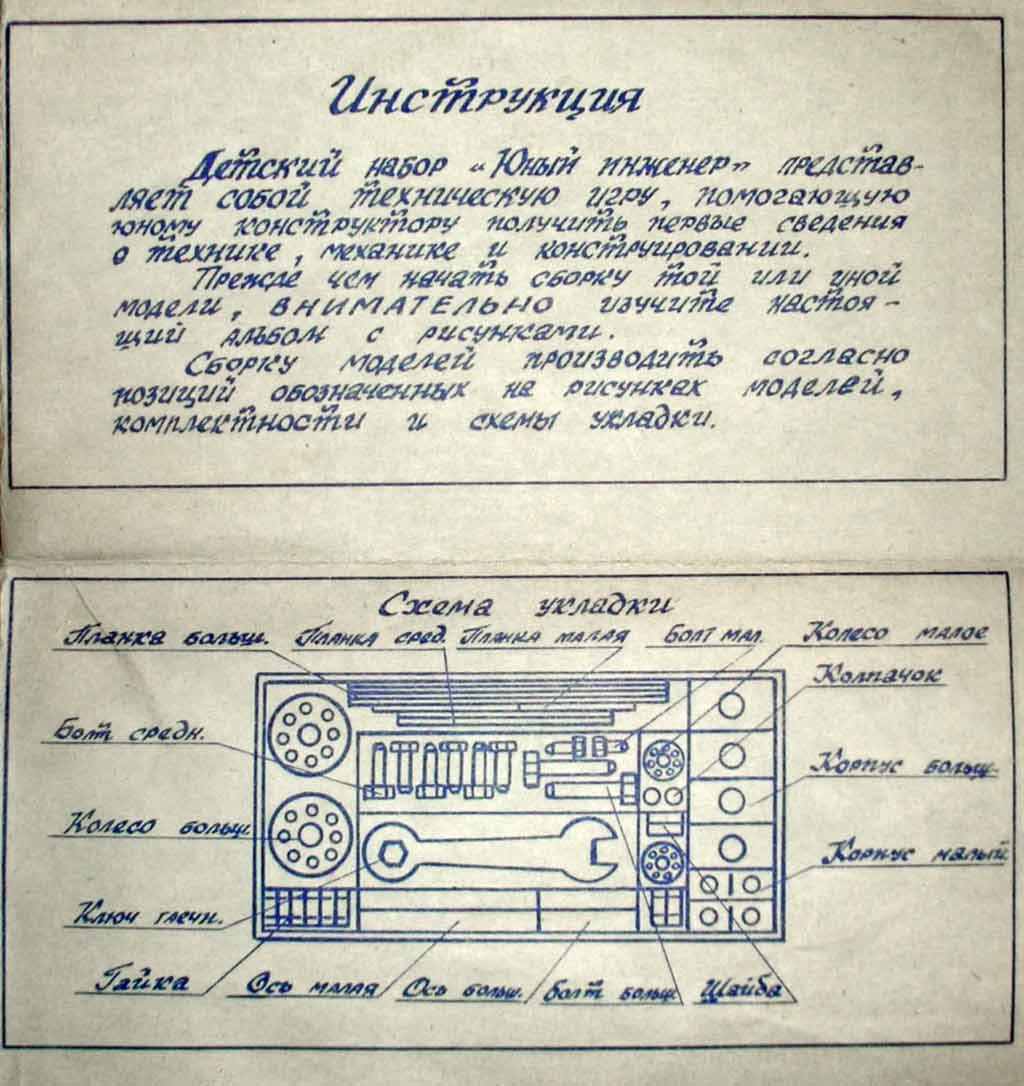 Инструкция
Детский набор «Юный инженер» представ-
ляет собой техническую игру, помогающую
юному конструктору получить первые сведения
о технике, механике и конструировании.
Прежде чем начать сборку той или иной
модели, ВНИМАТЕЛЬНО изучите настоя-
щий альбом с рисунками.
Сборку моделей производить согласно
позиций обозначенных на рисунках моделей,
комплектности и схемы укладки.
Схема укладки
Планка больш. Планка сред. Планка малая Болт мал. Колесо малое
Колпачок
Болт средн.
Корпус больш.
Колесо больш.
Корпус малый
Ключ гаечн.
Гайка Ось малая Ось больш. Болт больш. Шайба